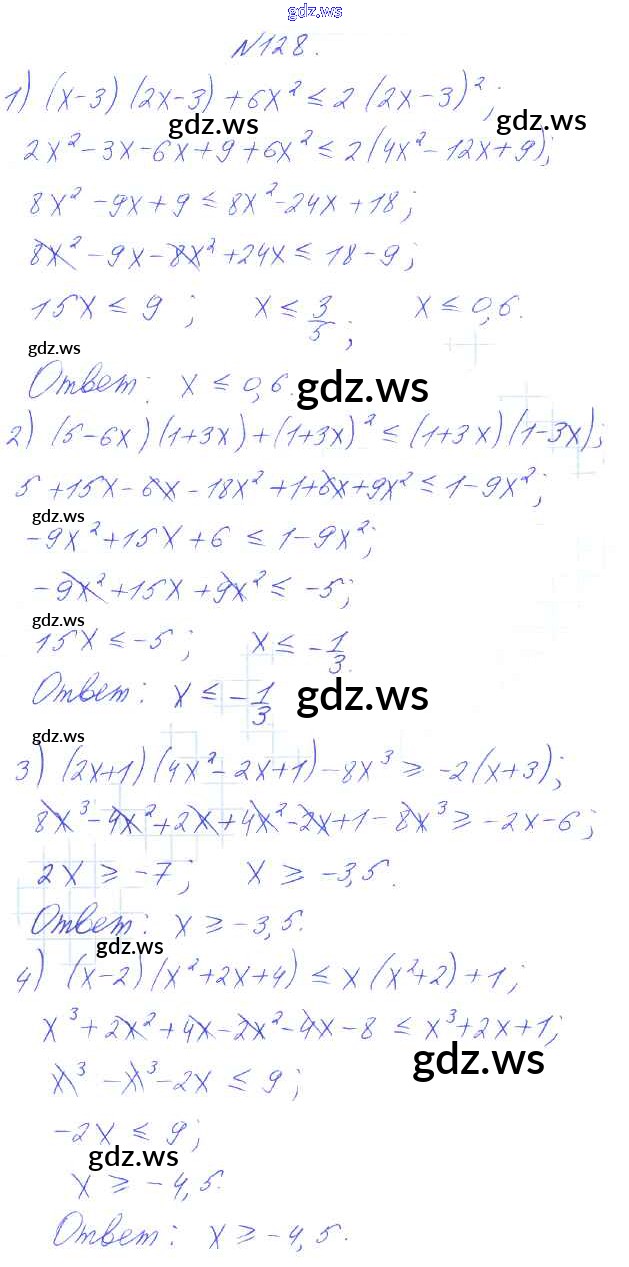 gdz.ws
№128.
1) (x-3)(2x-3)+6x² ≤ 2(2x-3)²;
gdz.ws gdz.ws
2x²-3x-6x+9+6x² ≤ 2(4x²-12x+9);
8x²-9x+9 ≤ 8x²-24x+18;
8x²-9x-8x²+24x ≤ 18-9;
15x ≤ 9; x ≤ 3/5; x ≤ 0,6.
gdz.ws
Ответ: x ≤ 0,6. gdz.ws
2) (5-6x)(1+3x)+(1+3x)² ≤ (1+3x)(1-3x);
5+15x-6x-18x²+1+6x+9x² ≤ 1-9x²;
gdz.ws
-9x²+15x+6 ≤ 1-9x²;
-9x²+15x+9x² ≤ -5;
gdz.ws
15x ≤ -5; x ≤ -1/3.
Ответ: x ≤ -1/3 gdz.ws
gdz.ws
3) (2x+1)(4x²-2x+1)-8x³ ≥ -2(x+3);
8x³-4x²+2x+4x²-2x+1-8x³ ≥ -2x-6;
2x ≥ -7; x ≥ -3,5.
Ответ: x ≥ -3,5.
gdz.ws
4) (x-2)(x²+2x+4) ≤ x(x²+2)+1;
x³+2x²+4x-2x²-4x-8 ≤ x³+2x+1;
gdz.ws
x³-x³-2x ≤ 9;
-2x ≤ 9;
gdz.ws
x ≥ -4,5.
Ответ: x ≥ -4,5.